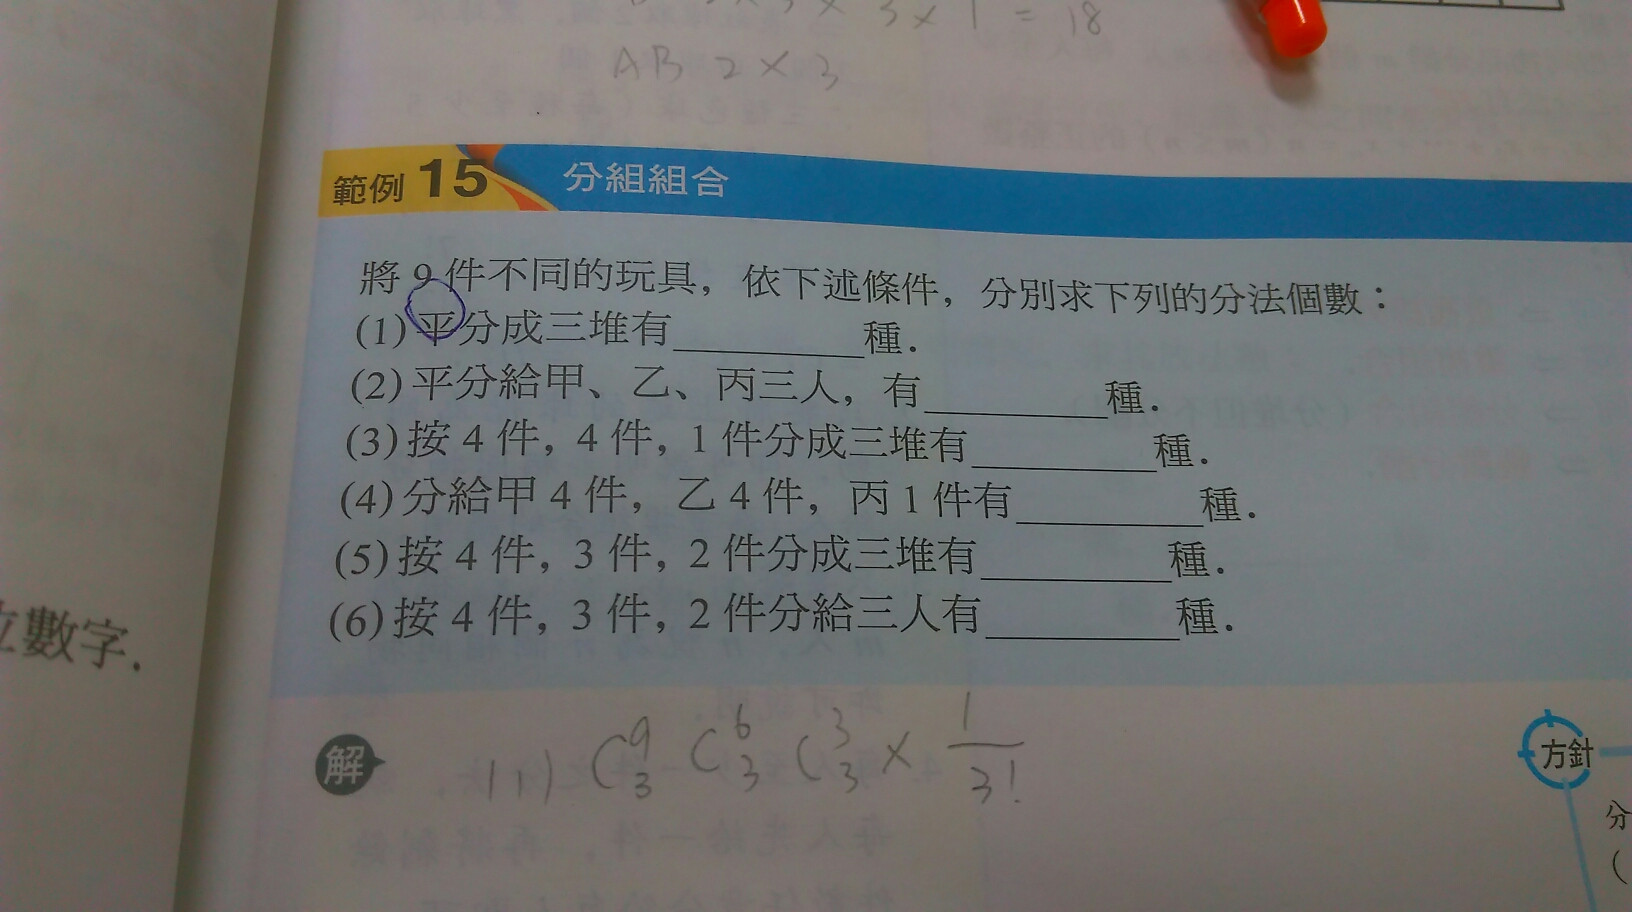 3 × 1 = 18
AB 2 × 3
範例 15 分組組合
將 9 件不同的玩具，依下述條件，分別求下列的分法個數：
(1) 平分成三堆有________種．
(2) 平分給甲、乙、丙三人，有________種．
(3) 按 4 件，4 件，1 件分成三堆有________種．
(4) 分給甲 4 件，乙 4 件，丙 1 件有________種．
(5) 按 4 件，3 件，2 件分成三堆有________種．
(6) 按 4 件，3 件，2 件分給三人有________種．
數字．
解 (1) C⁹₃ C⁶₃ C³₃ × 1/3!
方針
分
(